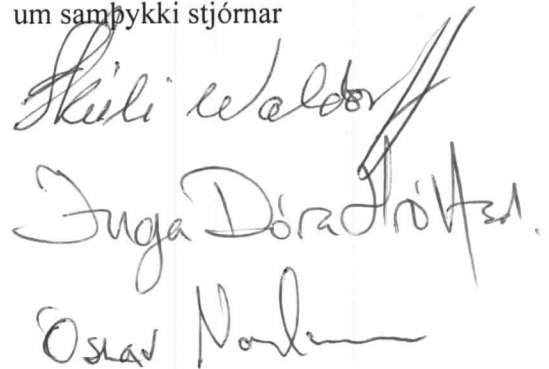 um samþykki stjórnar
Skúli Waldorff
Inga Dóra Hrólfsd.
Óskar